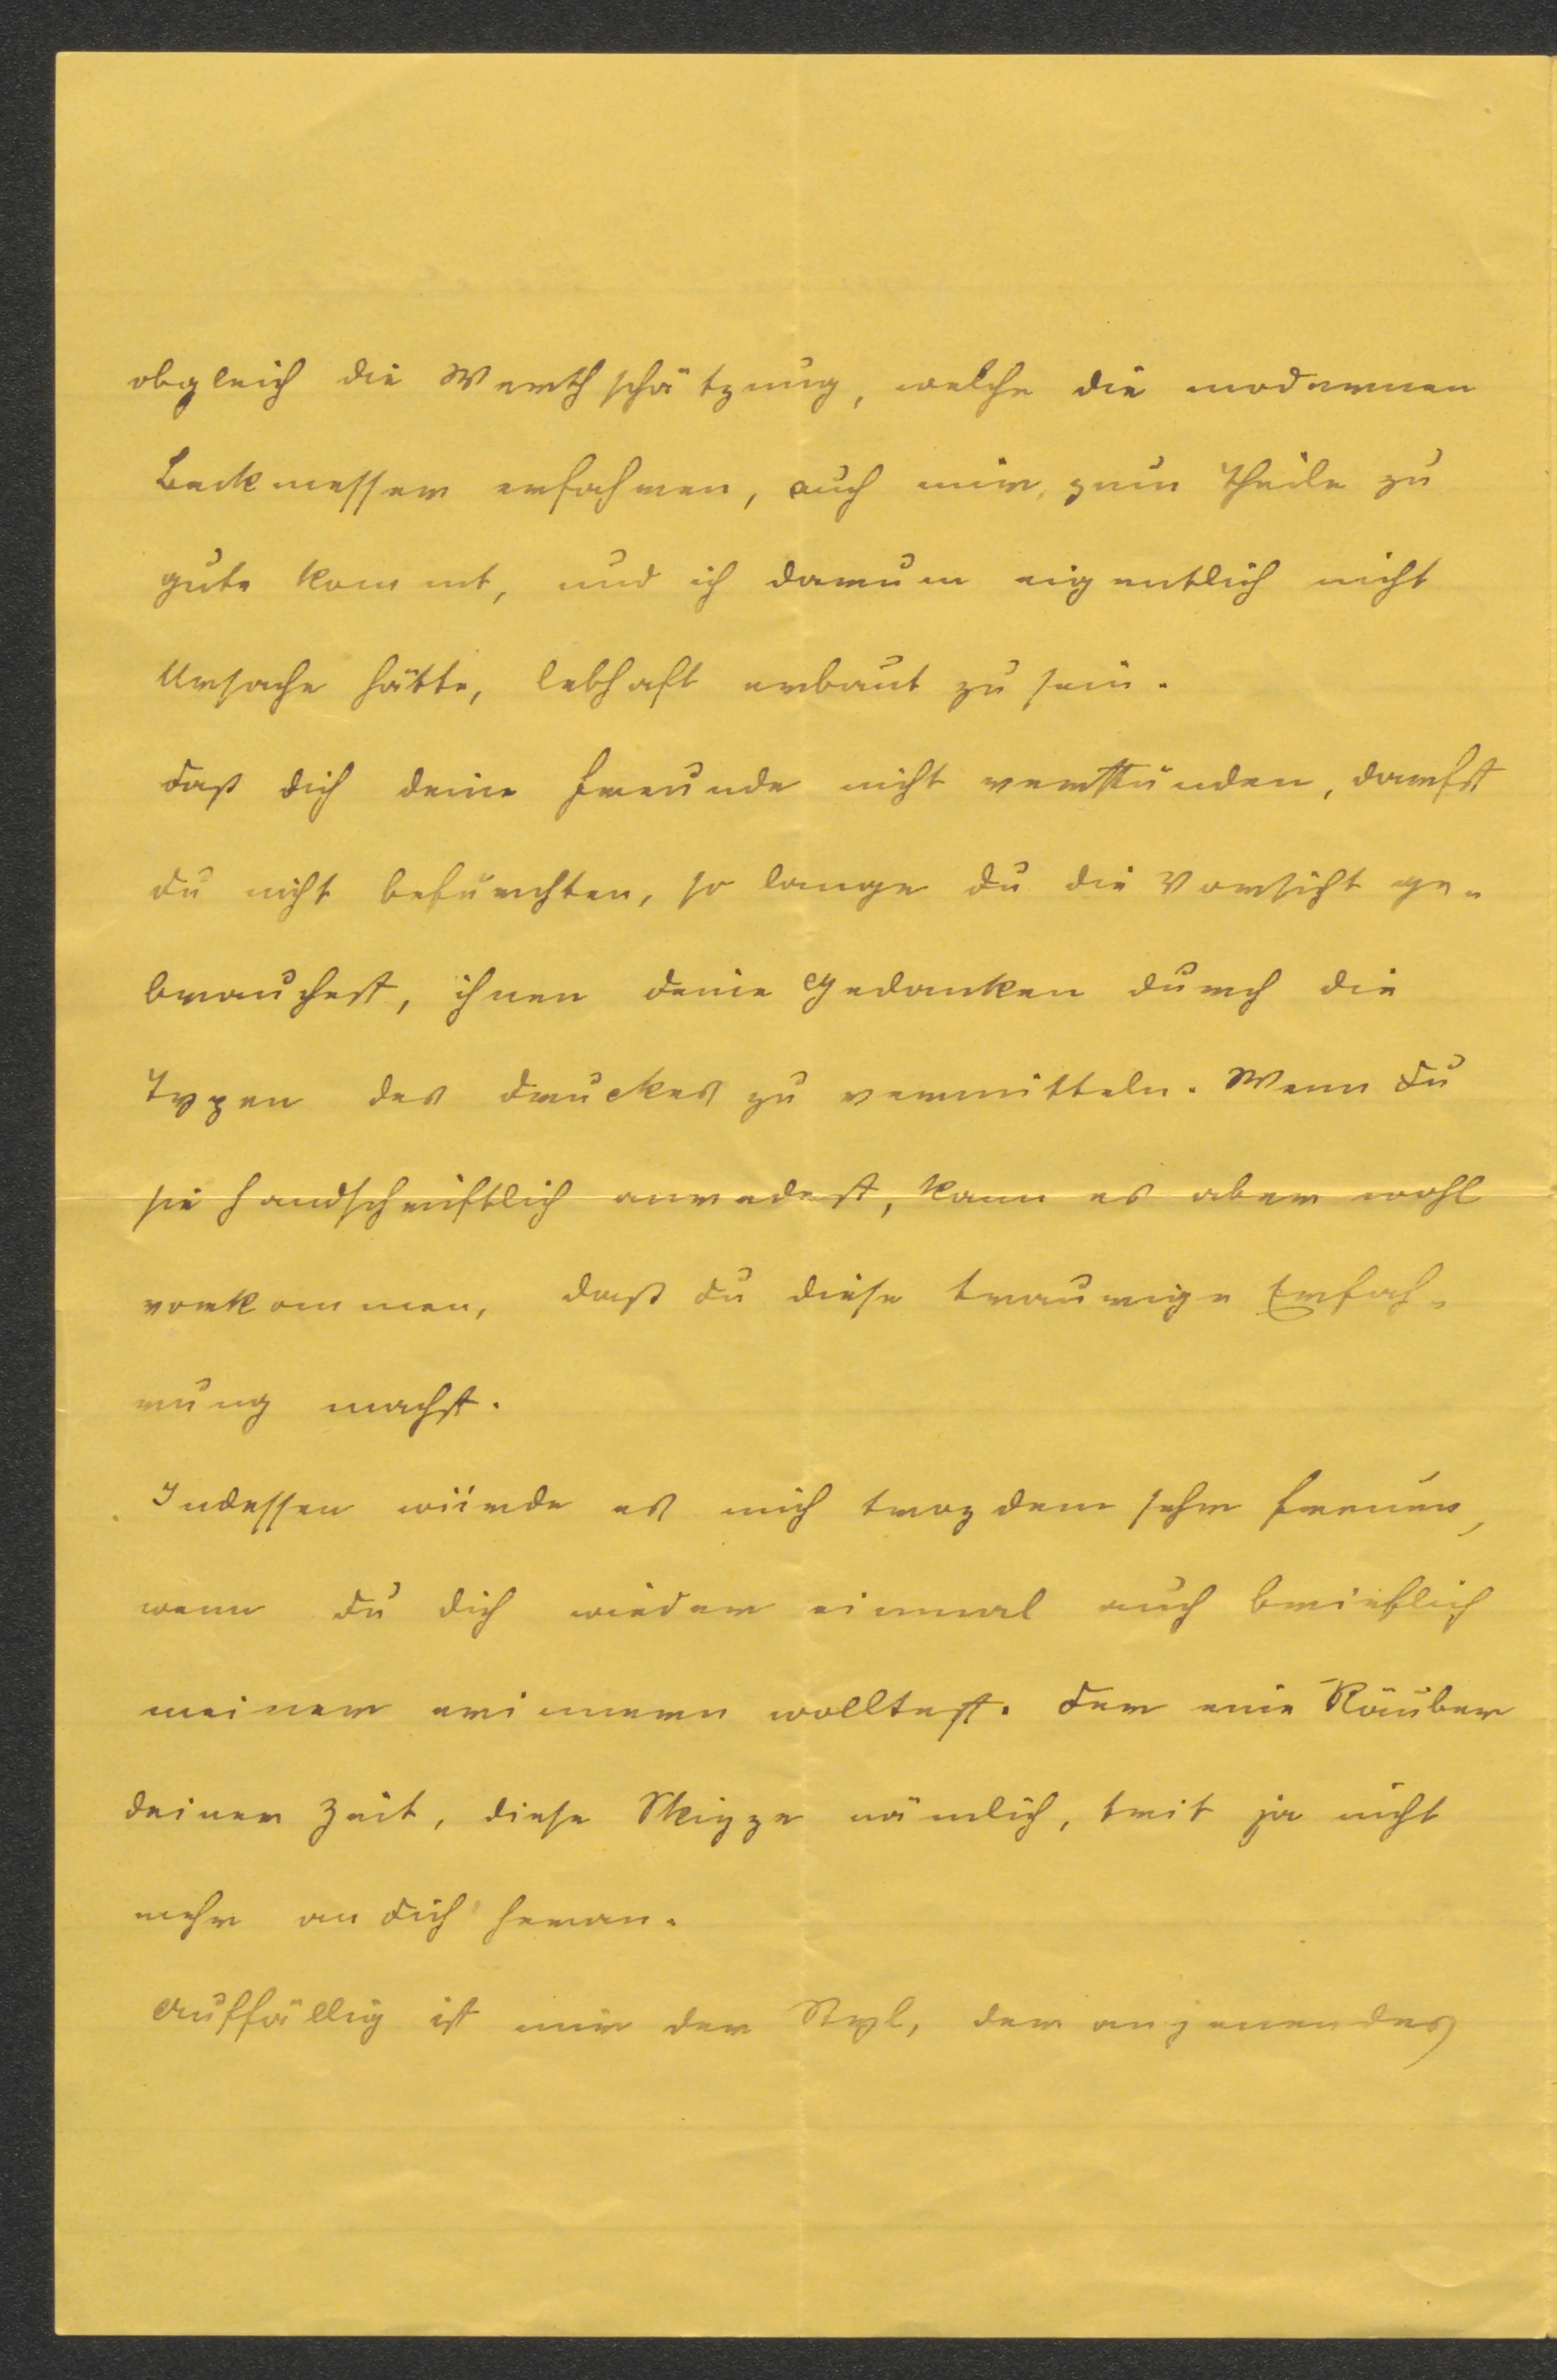 obgleich die Werthschätzung, welche die modernen
Beckmesser erfahren, auch mir zum Theile zu
gute kommt, und ich darum eigentlich nicht
Ursache hätte, lebhaft erbaut zu sein.
Daß dich deine Freunde nicht verstünden, darfst
Du nicht befürchten, so lange du die Vorsicht ge-
brauchest, ihnen deine Gedanken durch die
Typen des Druckes zu vermitteln. Wenn Du
sie handschriftlich anredest, kann es aber wohl
vorkommen, daß Du diese traurige Erfah-
rung machst.
Indessen würde es mich trozdem sehr freuen,
wenn Du dich wieder einmal auch brieflich
meiner erinnern wolltest. Der eine Räuber
deiner Zeit, diese Skizze nämlich, trit ja nicht
mehr an Dich heran.
Auffällig ist mir der Styl, der an jenen des